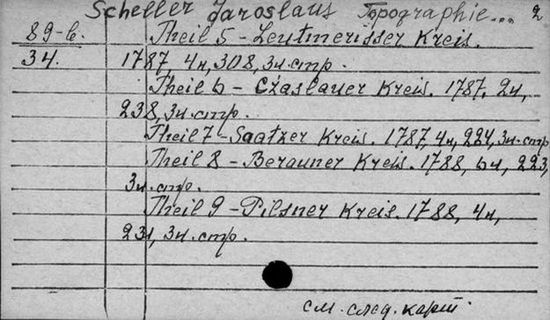 Scheller Jaroslaus Topographie... 2
89-6. Theil 5 - Leutmerisser Kreis.
34. 1787, 4н, 308, 3н. стр.
Theil 6 - Czaslauer Kreis. 1787. 2н,
238, 3н. стр.
Theil 7 - Saatzer Kreis. 1787, 4н, 224, 3н. стр
Theil 8 - Berauner Kreis. 1788, 6н, 223,
3н. стр.
Theil 9 - Pilsner Kreis. 1788, 4н,
231, 3н. стр.
см. след. карт.